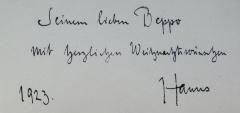 Seinem lieben Beppo
Mit herzlichen Weihnachtswünschen
Hanns
1923.